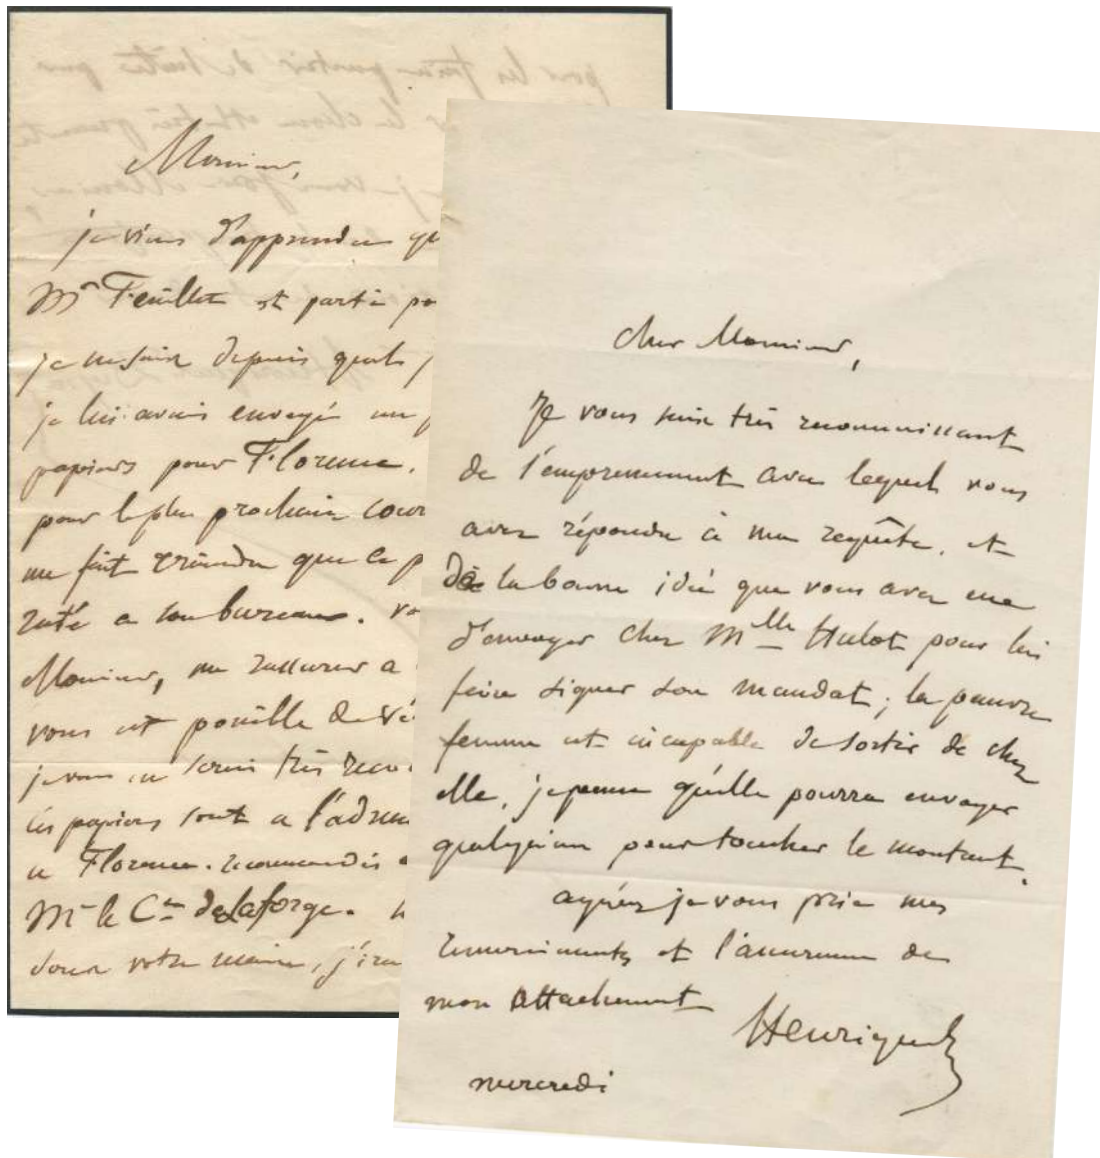 Monsieur,
je viens d'apprendre qu
Mr Feuillet est partie po
je ne sais depuis quels j
je lui avais envoyé un p
papiers pour Florence.
pour le plus prochain cour
me fait craindre que ce p
resté a son bureau. vo
Monsieur, me rassurer a
vous est possible de vé
je vous en serais très reco
les papiers sont a l'adresse
a Florence. recommandés a
Mr le Cte de Laforge.
votre

cher Monsieur,
Je vous suis très reconnaissant
de l'empressement avec lequel vous
avez répondu à ma requête, et
de la bonne idée que vous avez eue
d'envoyer chez Mlle Hulot pour lui
faire signer son mandat ; la pauvre
femme est incapable de sortir de chez
elle, je pense qu'elle pourra envoyer
quelqu'un pour toucher le montant.
agréez je vous prie mes
remerciments et l'assurance de
mon attachement
Henriquel
mercredi